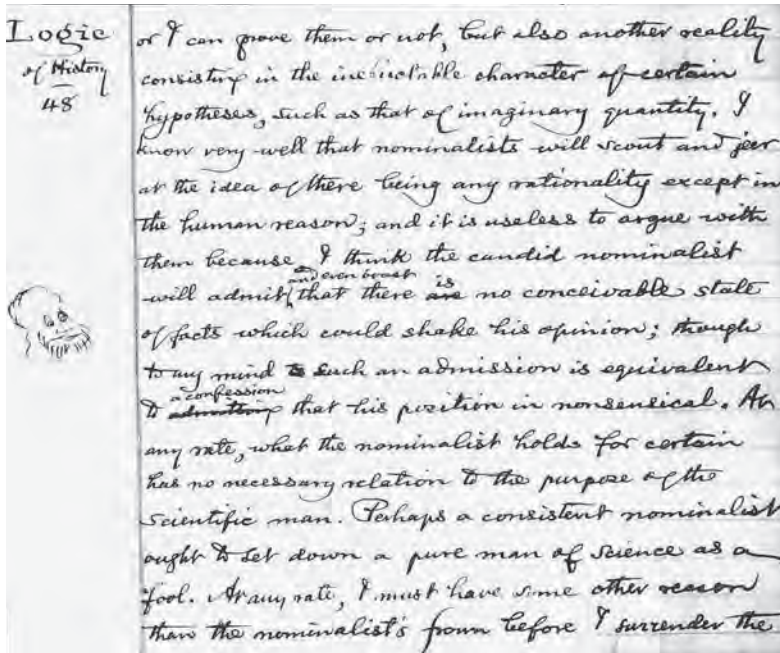 Logic
of History
48
or I can prove them or not, but also another reality
consisting in the ineluctable character of certain
hypotheses, such as that of imaginary quantity. I
know very well that nominalists will scout and jeer
at the idea of there being any rationality except in
the human reason; and it is useless to argue with
them because I think the candid nominalist
and even boast is
will admit that there are no conceivable state
of facts which could shake his opinion; though
to my mind to such an admission is equivalent
a confession
to admitting that his position in nonsensical. At
any rate, what the nominalist holds for certain
has no necessary relation to the purpose of the
scientific man. Perhaps a consistent nominalist
ought to set down a pure man of science as a
fool. At any rate, I must have some other reason
than the nominalist's frown before I surrender the